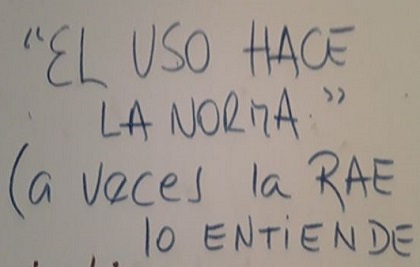 “EL USO HACE
LA NORMA.”
(a veces la RAE
lo ENTIENDE